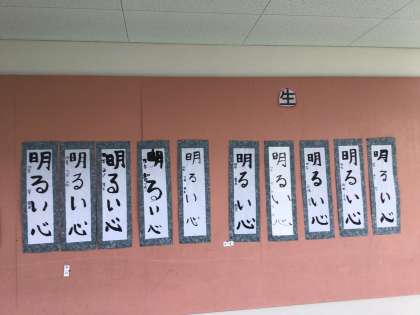 生
明るい心
明るい心
明るい心
明るい心
明るい心
明るい心
明るい心
明るい心
明るい心
明るい心